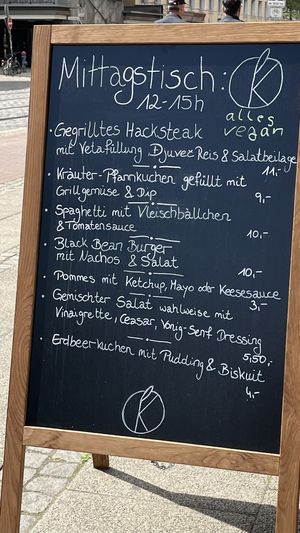 Mittagstisch:
12-15h
K
alles
vegan
• Gegrilltes Hacksteak
mit Vetafüllung Djuvec Reis & Salatbeilage
11,-
• Kräuter-Pfannkuchen gefüllt mit
Grillgemüse & Dip
9,-
• Spaghetti mit Vleischbällchen
& Tomatensauce
10,-
• Black Bean Burger
mit Nachos & Salat
10,-
• Pommes mit Ketchup, Mayo oder Keesesauce
3,-
• Gemischter Salat wahlweise mit
Vinaigrette, Ceasar, Vonig-Senf Dressing
5,50,-
• Erdbeerkuchen mit Pudding & Biskuit
4,-
K